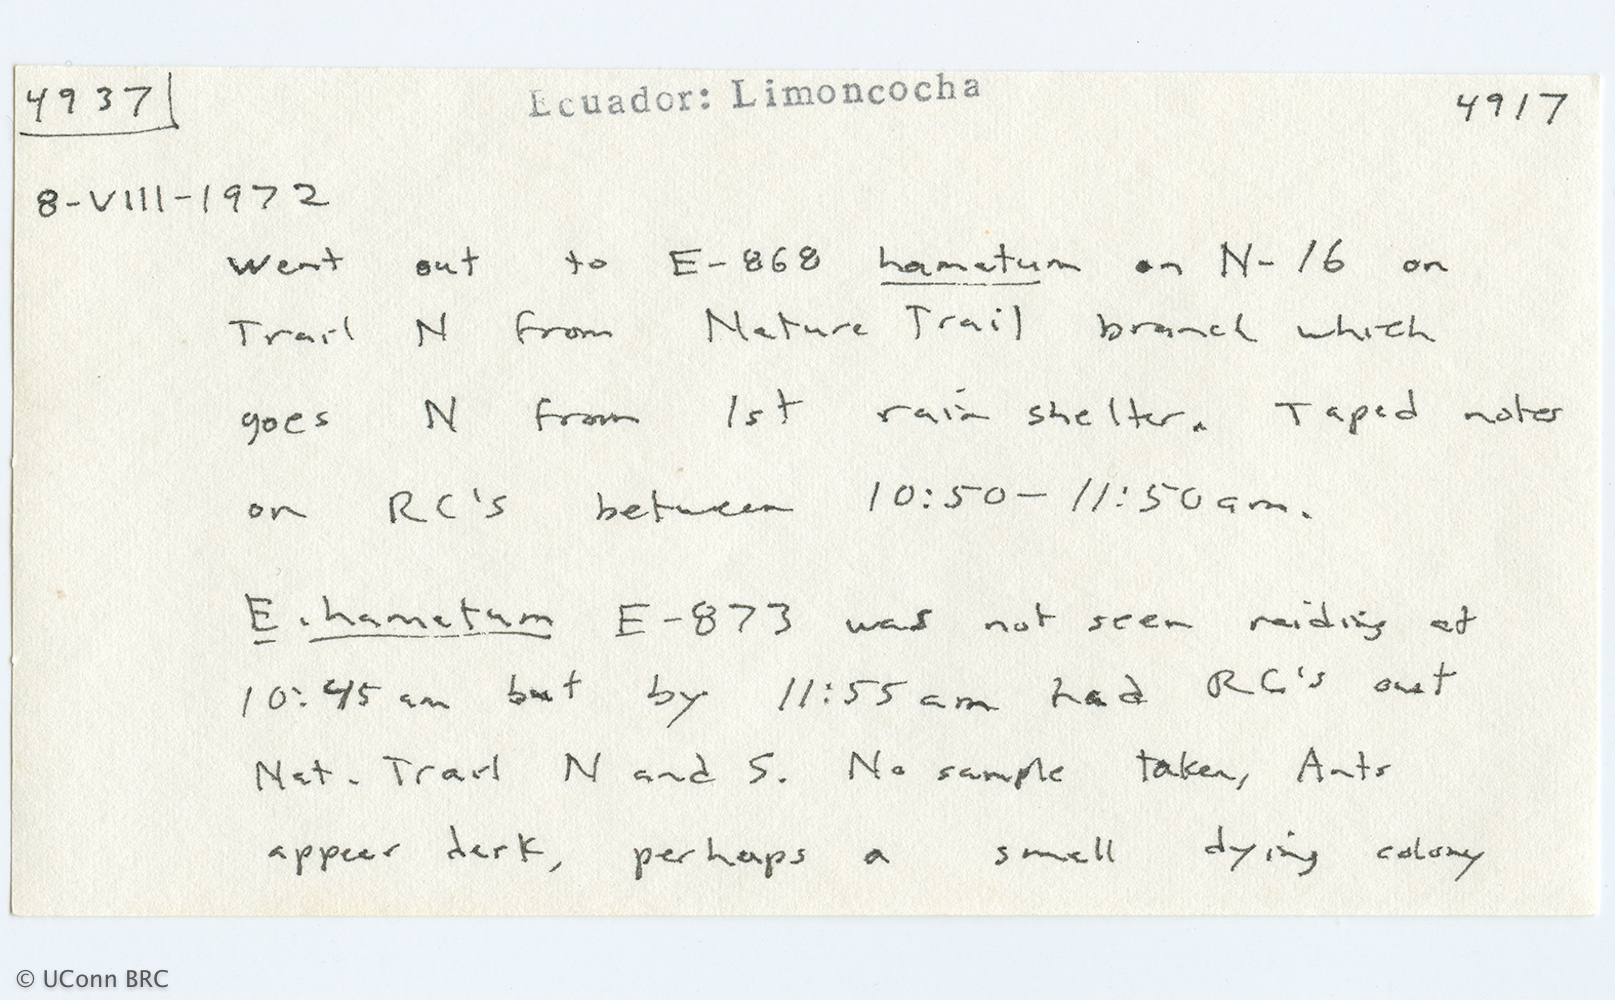 4937 Ecuador: Limoncocha 4917
8-VIII-1972
Went out to E-868 hamatum on N-16 on
Trail N from Nature Trail branch which
goes N from 1st rain shelter. Taped notes
on RC's between 10:50-11:50am.
E. hamatum E-873 was not seen raiding at
10:45am but by 11:55am had RC's out
Nat. Trail N and S. No sample taken, Ants
appear dark, perhaps a small dying colony
© UConn BRC